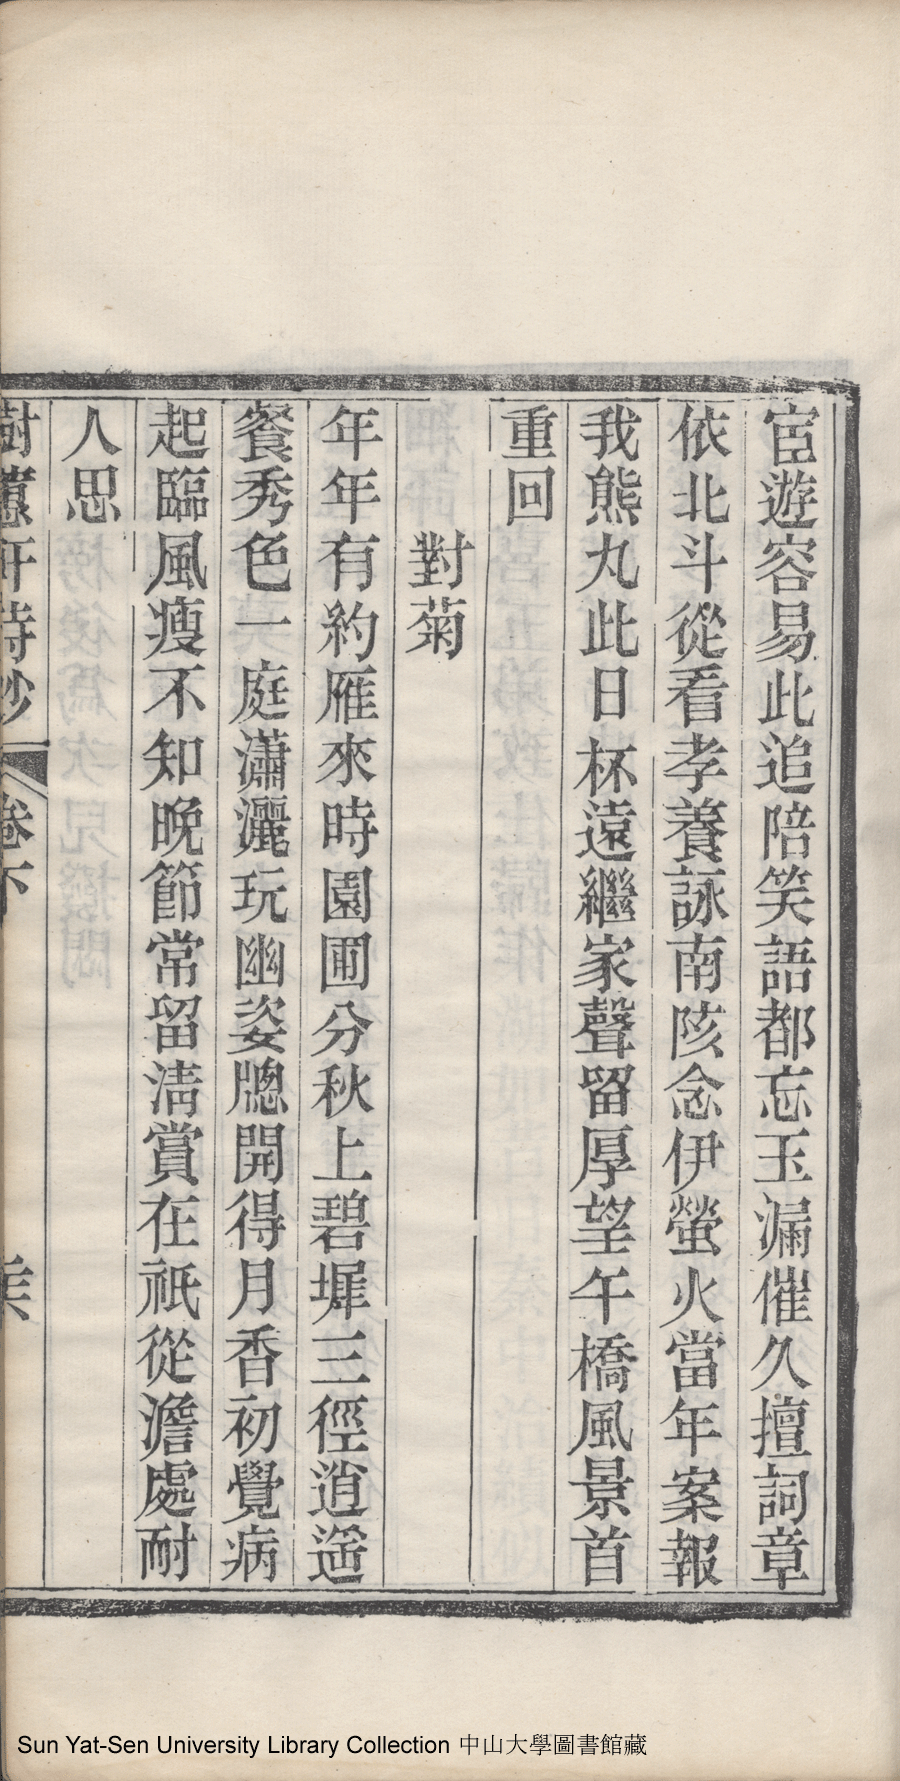 宦遊容易此追陪笑語都忘玉漏催久擅詞章
依北斗從看孝養詠南陔念伊螢火當年案報
我熊丸此日杯遠繼家聲留厚望午橋風景首
重回
對菊
年年有約雁來時園圃分秋上碧墀三徑逍遙
餐秀色一庭瀟灑玩幽姿牕開得月香初覺病
起臨風瘦不知晚節常留淸賞在祇從澹處耐
人思
樹蕙軒詩鈔 卷下
Sun Yat-Sen University Library Collection 中山大學圖書館藏